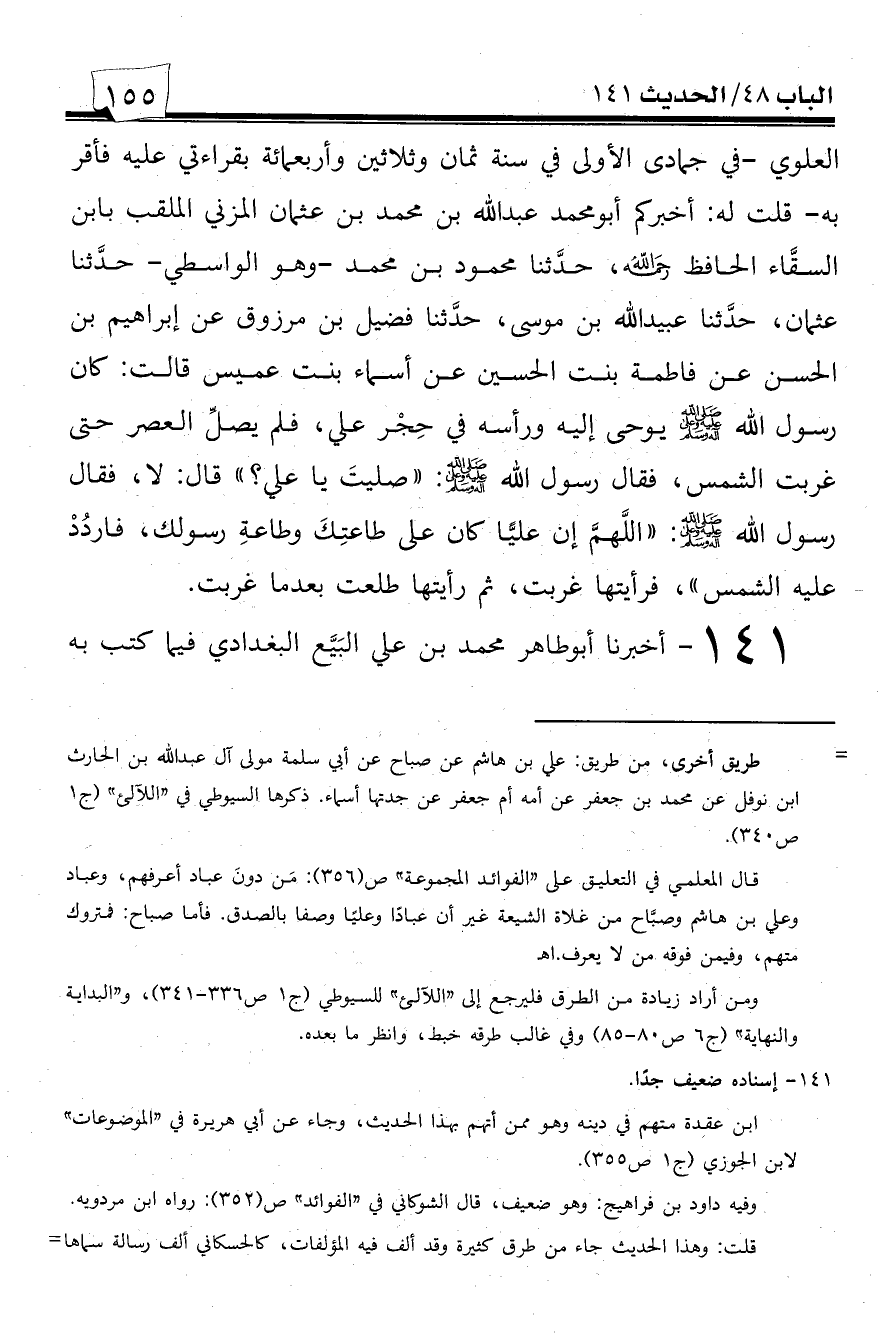 الباب ٤٨/ الحديث ١٤١
١٥٥
العلوي -في جمادى الأولى في سنة ثمان وثلاثين وأربعمائة بقراءتي عليه فأقر
به- قلت له: أخبركم أبومحمد عبدالله بن محمد بن عثمان المزني الملقب بابن
السقَّاء الحافظ رحمه الله، حدَّثنا محمود بن محمد -وهو الواسطي- حدَّثنا
عثمان، حدَّثنا عبيدالله بن موسى، حدَّثنا فضيل بن مرزوق عن إبراهيم بن
الحسن عن فاطمة بنت الحسين عن أسماء بنت عميس قالت: كان
رسول الله صلى الله عليه وآله وسلم يوحى إليه ورأسه في حِجْر علي، فلم يصلِّ العصر حتى
غربت الشمس، فقال رسول الله صلى الله عليه وآله وسلم: «صليتَ يا علي؟» قال: لا، فقال
رسول الله صلى الله عليه وآله وسلم: «اللَّهمَّ إن عليًّا كان على طاعتِكَ وطاعةِ رسولك، فاردُدْ
عليه الشمس»، فرأيتها غربت، ثم رأيتها طلعت بعدما غربت.
١٤١- أخبرنا أبوطاهر محمد بن علي البَيِّع البغدادي فيما كتب به
= طريق أخرى، من طريق: علي بن هاشم عن صباح عن أبي سلمة مولى آل عبدالله بن الحارث
ابن نوفل عن محمد بن جعفر عن أمه أم جعفر عن جدتها أسماء. ذكرها السيوطي في «اللآلئ» (ج١
ص٣٤٠).
قال المعلمي في التعليق على «الفوائد المجموعة» ص(٣٥٦): مَن دونَ عباد أعرفهم، وعباد
وعلي بن هاشم وصبَّاح من غلاة الشيعة غير أن عبادًا وعليًا وصفا بالصدق. فأما صباح: فمتروك
متهم، وفيمن فوقه من لا يعرف.اهـ
ومن أراد زيادة من الطرق فليرجع إلى «اللآلئ» للسيوطي (ج١ ص٣٣٦-٣٤١)، و«البداية
والنهاية» (ج٦ ص٨٠-٨٥) وفي غالب طرقه خبط، وانظر ما بعده.
١٤١- إسناده ضعيف جدًا.
ابن عقدة متهم في دينه وهو ممن أتهم بهذا الحديث، وجاء عن أبي هريرة في «الموضوعات»
لابن الجوزي (ج١ ص٣٥٥).
وفيه داود بن فراهيج: وهو ضعيف، قال الشوكاني في «الفوائد» ص(٣٥٢): رواه ابن مردويه.
قلت: وهذا الحديث جاء من طرق كثيرة وقد ألف فيه المؤلفات، كالحسكاني ألف رسالة سماها=